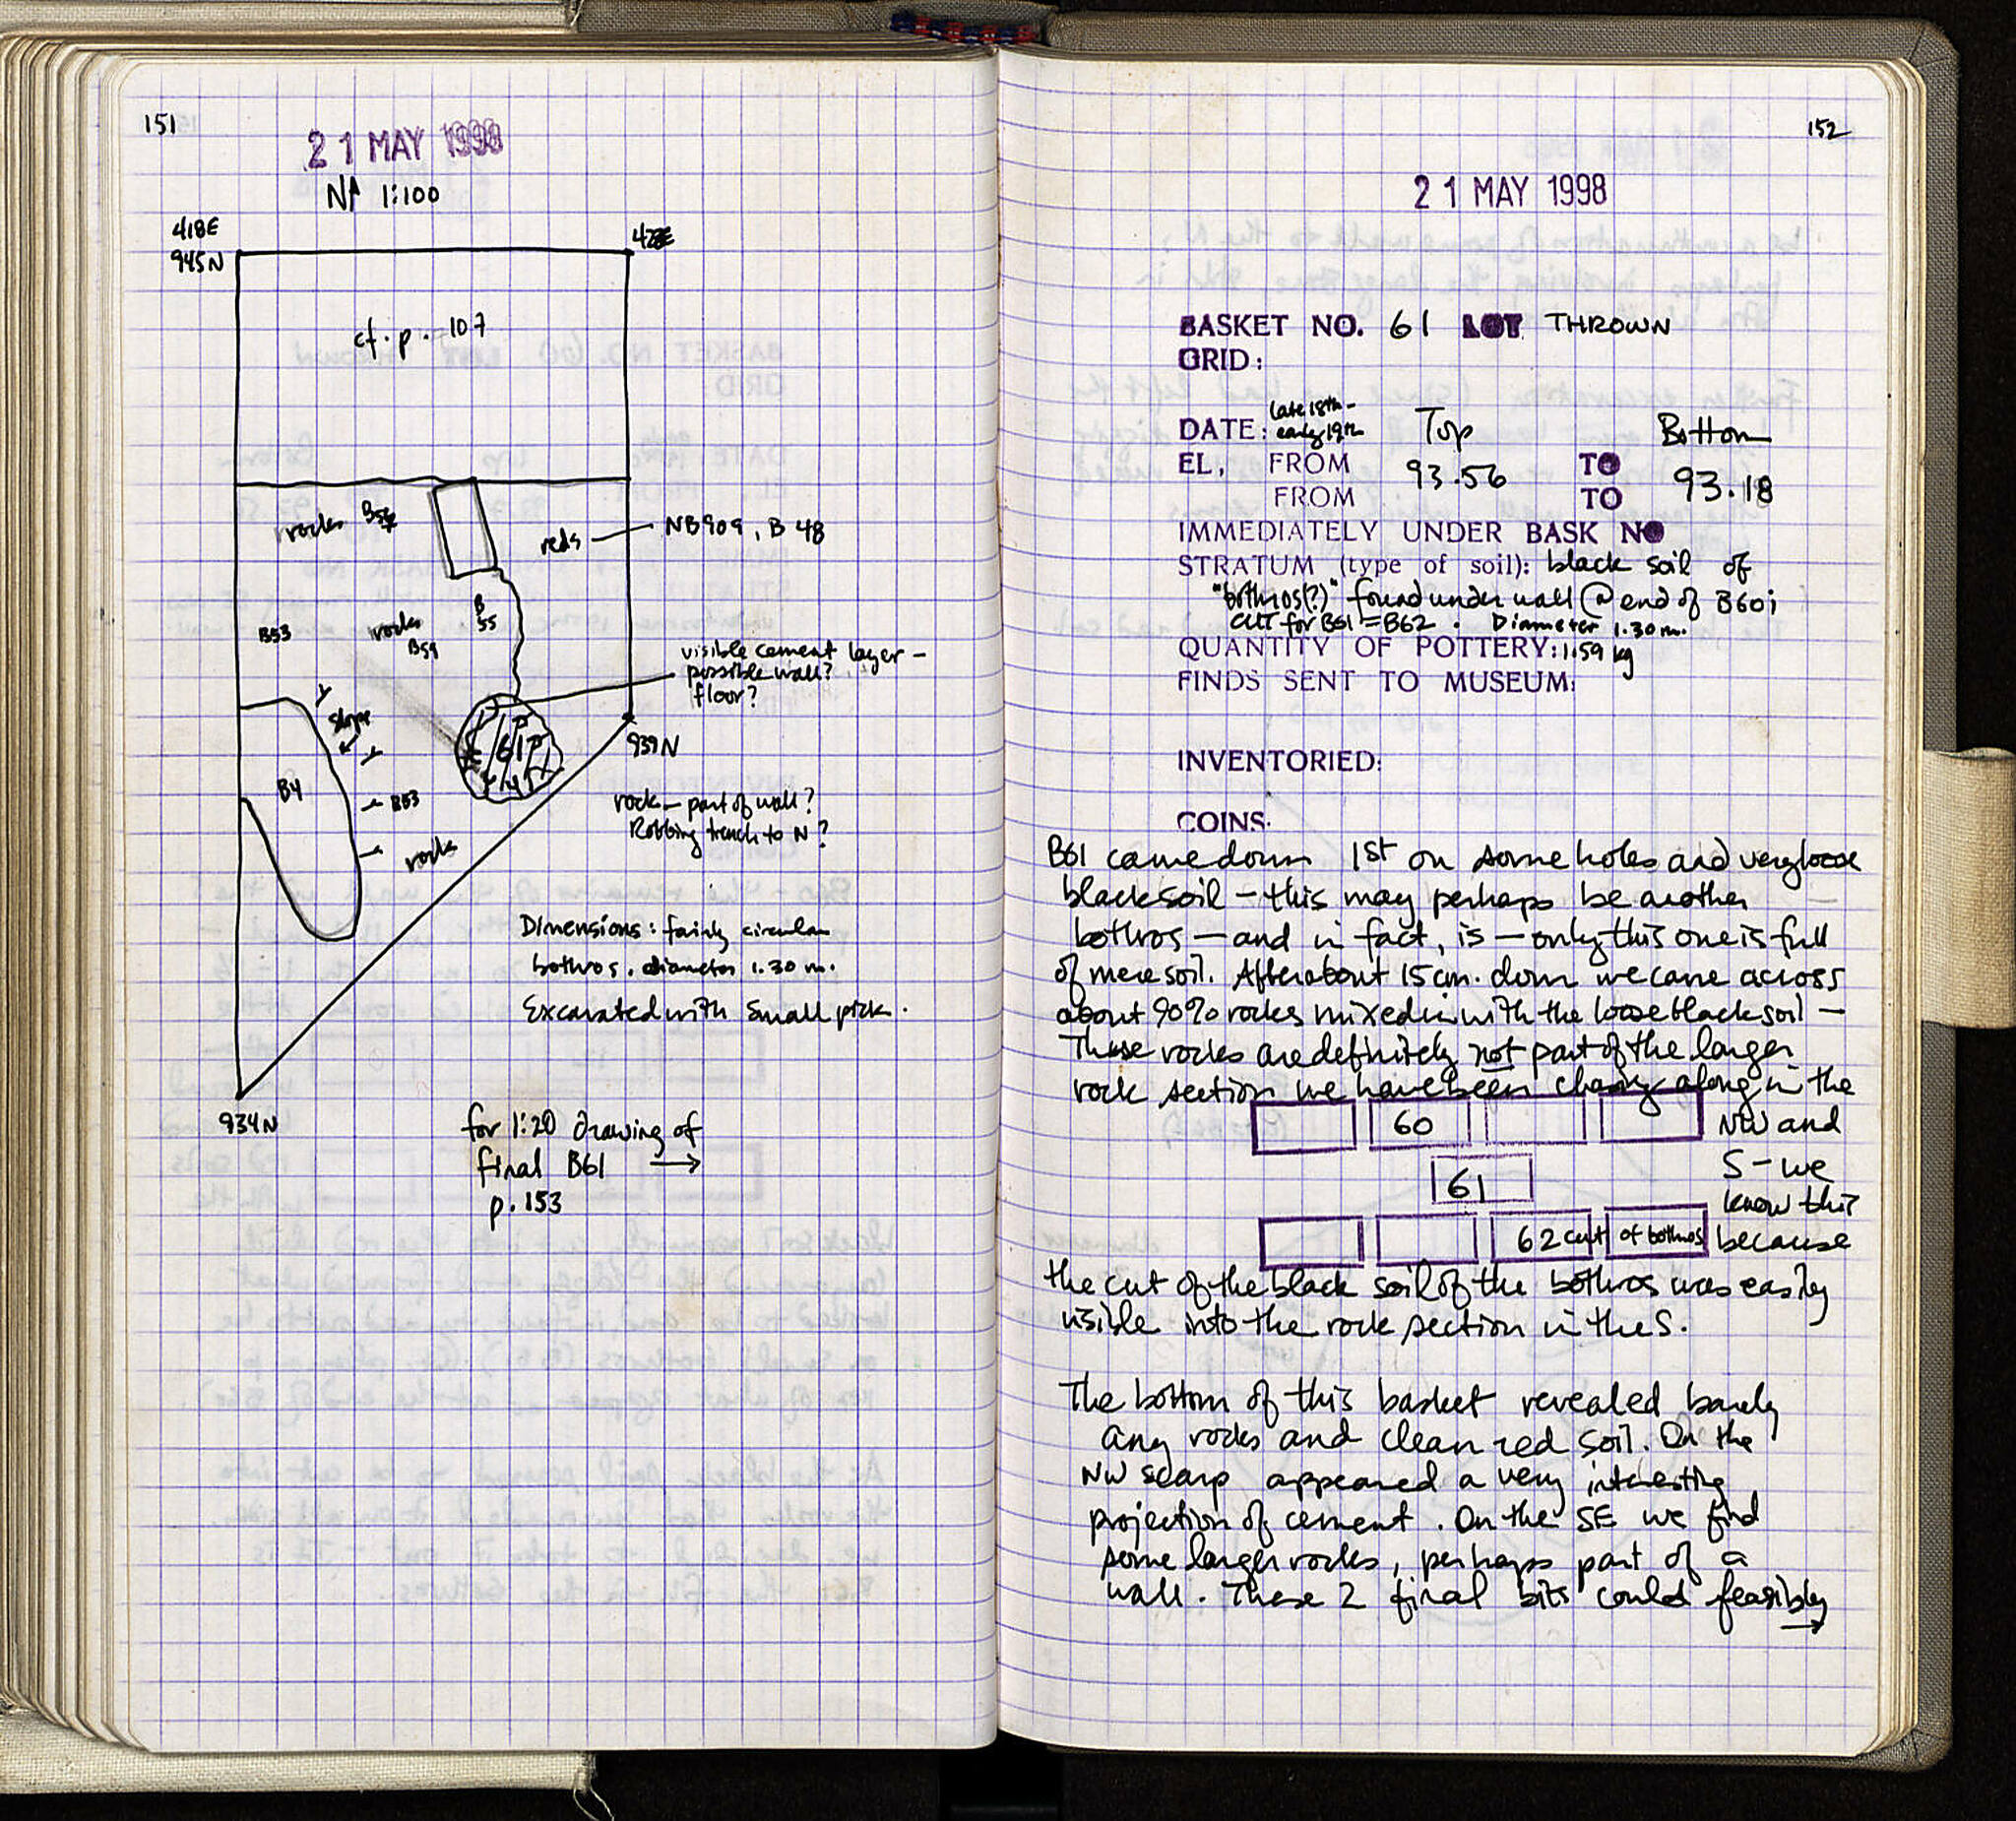 151
21 MAY 1998
N 1:100
418E
945N
423E
cf. p. 107
rocks
reds
NB909, B 48
B53
rocks
B59
B
55
visible cement layer -
possible wall?
floor?
slope
61
939N
B4
B53
rocks
rock - part of wall?
Robbing trench to N?
Dimensions: fairly circular
bothros. diameter 1.30 m.
Excavated with small pick.
934N
for 1:20 drawing of
final B61 →
p. 153
152
21 MAY 1998
BASKET NO. 61 LOT THROWN
GRID:
DATE: late 18th - early 19th Top Bottom
EL, FROM 93.56 TO 93.18
FROM TO
IMMEDIATELY UNDER BASK NO
STRATUM (type of soil): black soil of
"bothros(?)" found under wall @ end of B60;
cut for B61 = B62. Diameter 1.30 m.
QUANTITY OF POTTERY: 1.59 kg
FINDS SENT TO MUSEUM:
INVENTORIED:
COINS:
B61 came down 1st on some holes and very loose
black soil - this may perhaps be another
bothros - and in fact, is - only this one is full
of mere soil. After about 15 cm. down we came across
about 90% rocks mixed in with the loose black soil -
These rocks are definitely not part of the larger
rock section we have been chasing along in the
60
NW and
61
S - we
know this
62 cut of bothros
because
the cut of the black soil of the bothros was easily
visible into the rock section in the S.
The bottom of this basket revealed barely
any rocks and clean red soil. On the
NW scarp appeared a very interesting
projection of cement. On the SE we find
some larger rocks, perhaps part of a
wall. These 2 final bits could feasibly
→